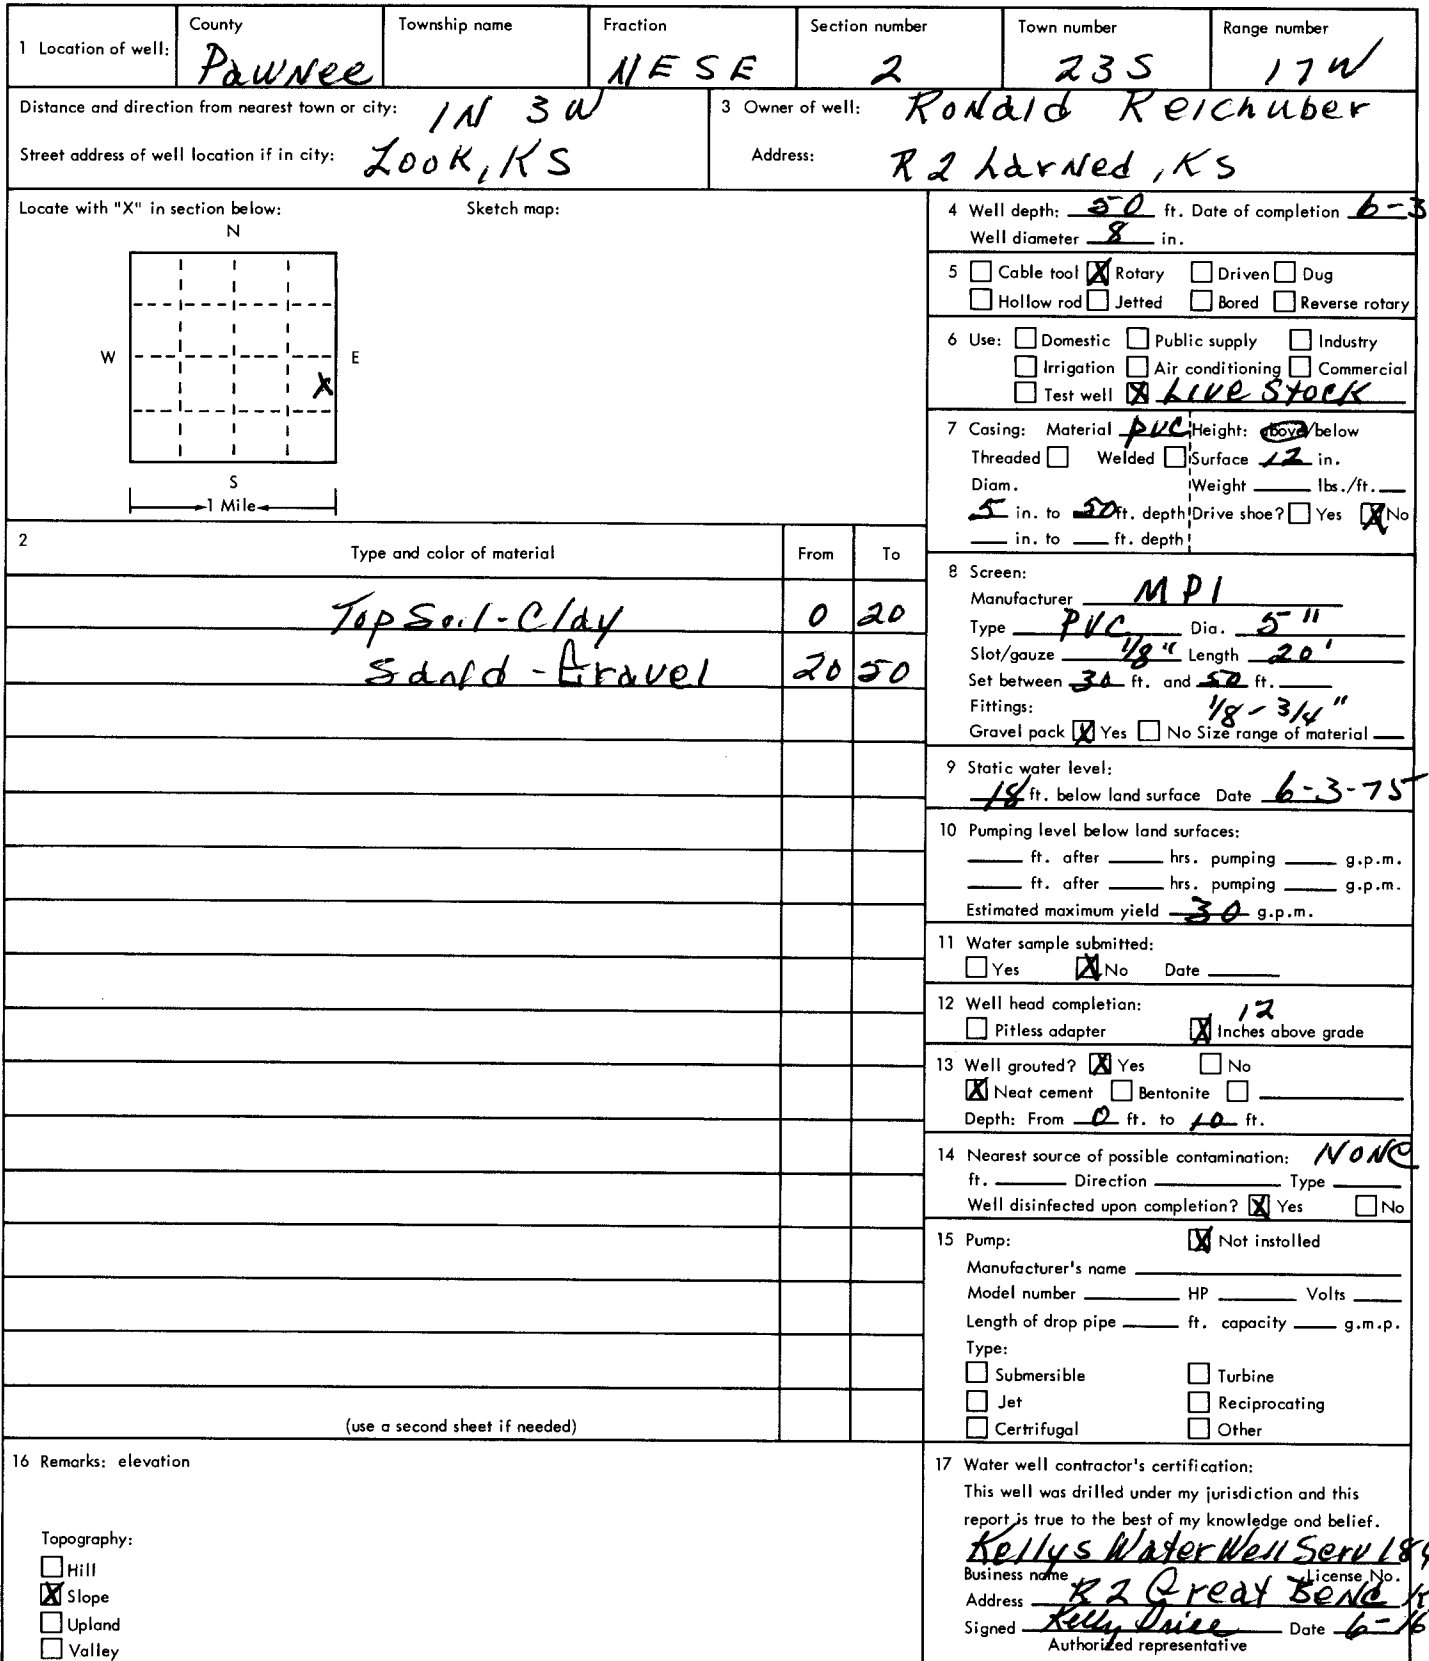 1 Location of well: County Township name Fraction Section number Town number Range number
Pawnee NESE 2 23S 17W
Distance and direction from nearest town or city: 1N 3W
Street address of well location if in city: Zook, KS
3 Owner of well: Ronald Reichuber
Address: R2 Larned, KS
Locate with "X" in section below: Sketch map:
N
W E
X
S
1 Mile
4 Well depth: 50 ft. Date of completion 6-3
Well diameter 8 in.
5 Cable tool X Rotary Driven Dug
Hollow rod Jetted Bored Reverse rotary
6 Use: Domestic Public supply Industry
Irrigation Air conditioning Commercial
Test well X Live Stock
7 Casing: Material PVC Height: above/below
Threaded Welded Surface 12 in.
Diam. Weight lbs./ft.
5 in. to 50 ft. depth Drive shoe? Yes X No
in. to ft. depth
2 Type and color of material From To
Top Soil-Clay 0 20
Sand - Gravel 20 50
(use a second sheet if needed)
8 Screen:
Manufacturer MPI
Type PVC Dia. 5"
Slot/gauze 1/8" Length 20'
Set between 30 ft. and 50 ft.
Fittings: 1/8 - 3/4"
Gravel pack X Yes No Size range of material
9 Static water level:
18 ft. below land surface Date 6-3-75
10 Pumping level below land surfaces:
ft. after hrs. pumping g.p.m.
ft. after hrs. pumping g.p.m.
Estimated maximum yield 30 g.p.m.
11 Water sample submitted:
Yes X No Date
12 Well head completion: 12
Pitless adapter X Inches above grade
13 Well grouted? X Yes No
X Neat cement Bentonite
Depth: From 0 ft. to 10 ft.
14 Nearest source of possible contamination: None
ft. Direction Type
Well disinfected upon completion? X Yes No
15 Pump: X Not installed
Manufacturer's name
Model number HP Volts
Length of drop pipe ft. capacity g.m.p.
Type:
Submersible Turbine
Jet Reciprocating
Certrifugal Other
16 Remarks: elevation
Topography:
Hill
X Slope
Upland
Valley
17 Water well contractor's certification:
This well was drilled under my jurisdiction and this
report is true to the best of my knowledge and belief.
Kellys Water Well Serv 184
Business name License No.
Address R2 Great Bend K
Signed Kelly Price Date 6-16
Authorized representative